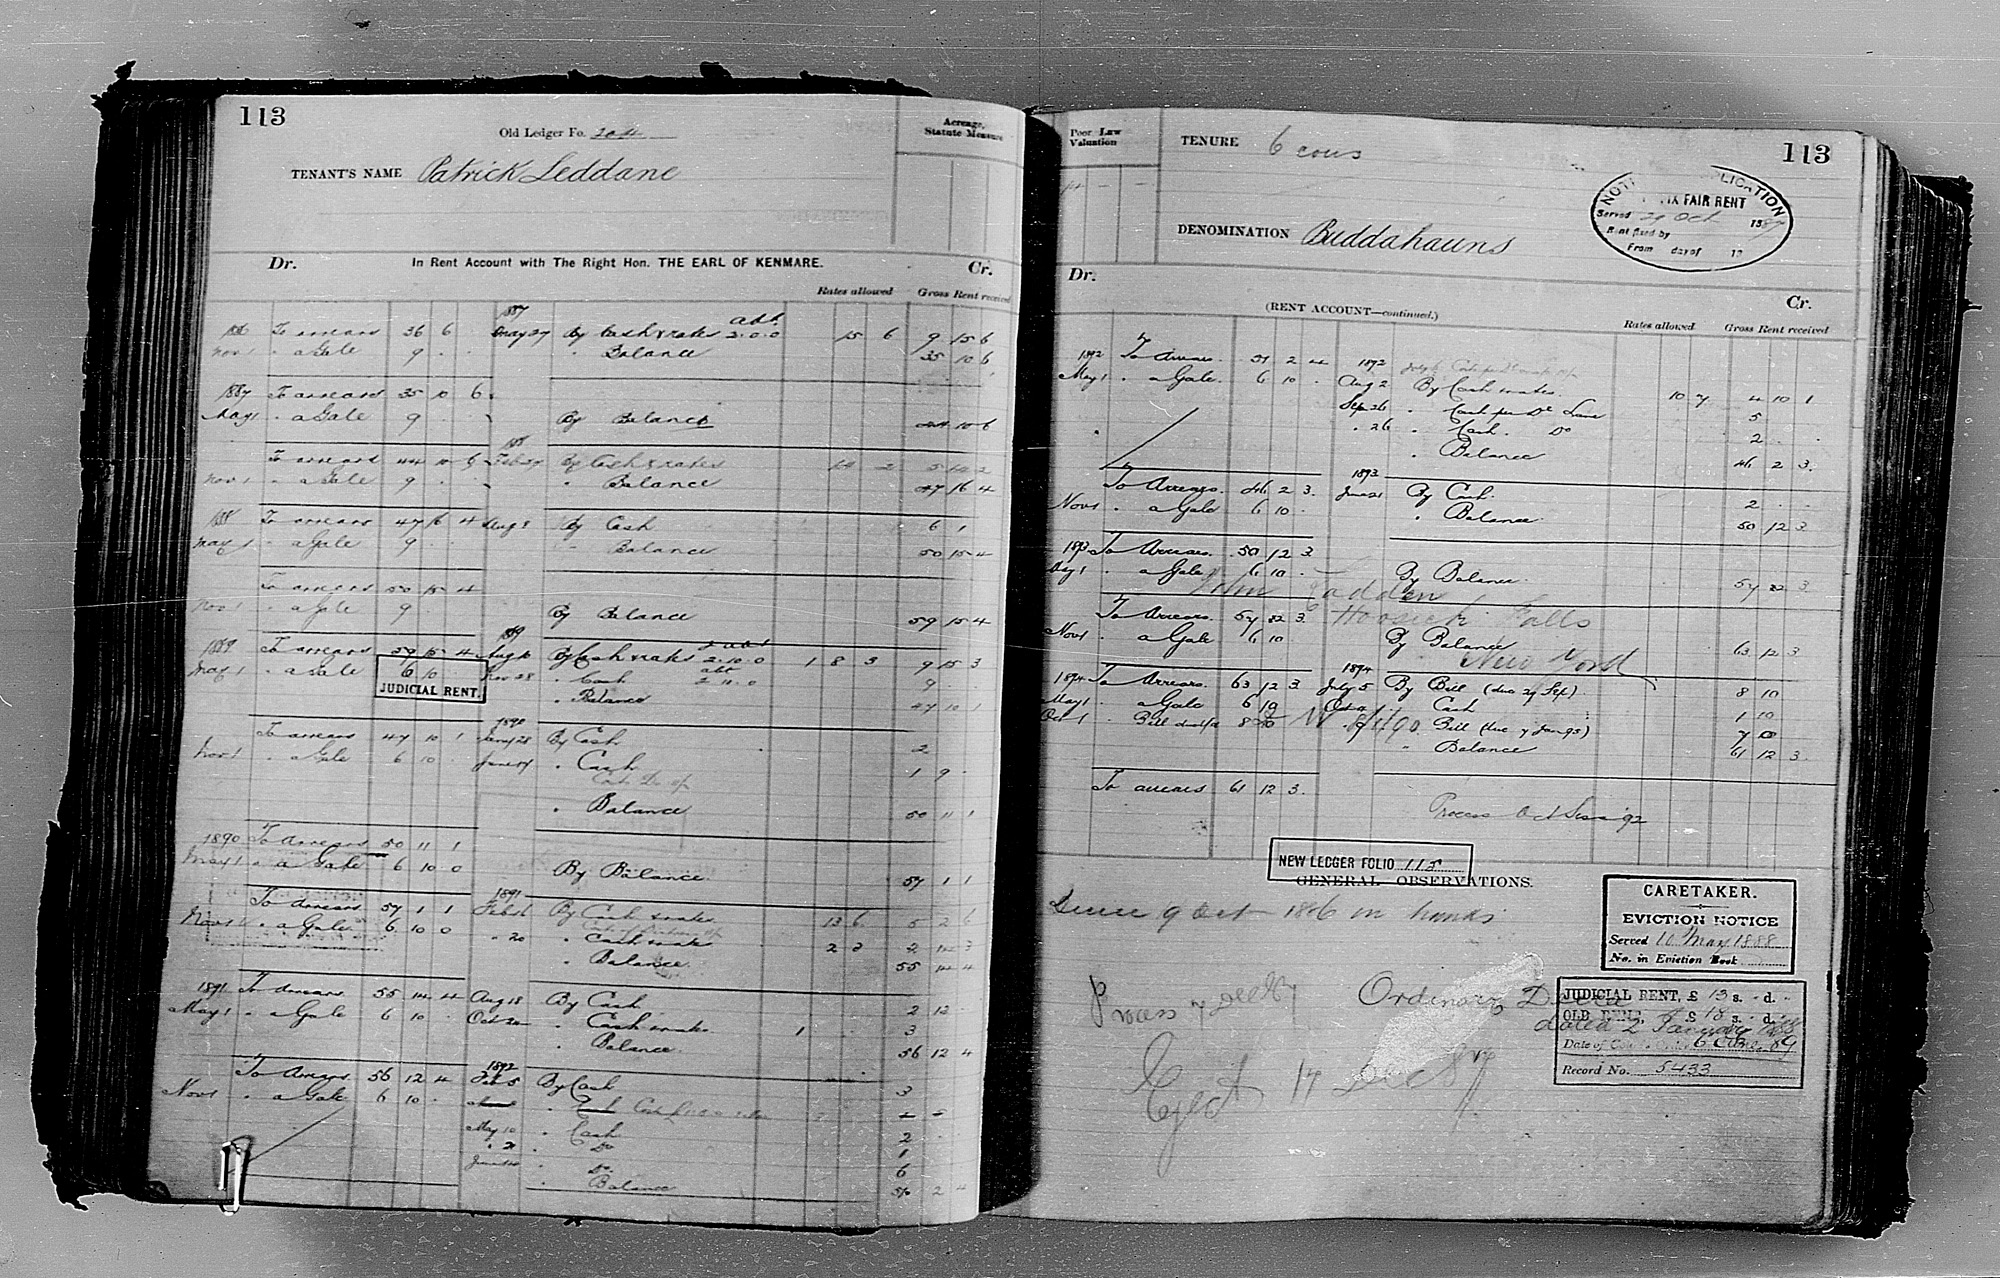 113
Old Ledger Fo. 204
Acreage, Statute Measure
TENANT'S NAME Patrick Leddane
Dr. In Rent Account with The Right Hon. THE EARL OF KENMARE. Cr.
Rates allowed Gross Rent received
1887
1886 To arrears 36 6 May 27 By Cash & rates abt. 2.0.0 15 6 9 15 6
Nov 1 " a Gale 9 " Balance 35 10 6
1887 To arrears 35 10 6
May 1 " a Gale 9 By Balance 44 10 6
1888
To arrears 44 10 6 Feb 27 By Cash & rates 14 2 5 14 2
Nov 1 " a Gale 9 " Balance 47 16 4
1888 To arrears 47 16 4 Aug 8 By Cash 6 1
May 1 " a Gale 9 " Balance 50 15 4
To arrears 50 15 4
Nov 1 " a Gale 9 By Balance 59 15 4
1889
1889 To arrears 59 15 4 Aug 10 By Cash & rates abt 2.10.0 1 8 3 9 15 3
May 1 " a Gale 6 10 Nov 28 " Cash abt 2.10.0 9
JUDICIAL RENT.
" Balance 47 10 1
1890
To arrears 47 10 1 Jany 28 By Cash 2
Nov 1 " a Gale 6 10 June " Cash 1 9
" Balance 50 11 1
1890 To Arrears 50 11 1
May 1 " a Gale 6 10 0 By Balance 57 1 1
1891
To Arrears 57 1 1 Feb By Cash & rates 13 6 5 2 6
Nov 1 " a Gale 6 10 0 " 20 " Cash & rates 2 3
" Balance 55 14 4
1891 To Arrears 55 14 4 Aug 18 By Cash 2 12
May 1 " a Gale 6 10 Oct 20 " Cash & rates 1 3
" Balance 56 12 4
1892
To Arrears 56 12 4 Feb 5 By Cash 3
Nov 1 " a Gale 6 10
May 10 " Cash 2
" 21 " Do 1
June " Do 6
" Balance 51 2 4
Poor Law Valuation
TENURE 6 cows
113
NOTICE APPLICATION
FIX FAIR RENT
Served 29 Oct 1887
Rent fixed by
From day of 18
DENOMINATION Buddahauns
Dr. Cr.
(RENT ACCOUNT—continued.)
Rates allowed Gross Rent received
1892 To Arrears 51 2 4 1892
May 1 " a Gale 6 10 Aug 2 By Cash & rates 10 7 4 10 1
Sep 26 " Cash per Dl Lane 5
" 26 " Cash Do 2
" Balance 46 2 3
1893
To Arrears 46 2 3 June 21 By Cash 2
Nov 1 " a Gale 6 10 " Balance 50 12 3
1893 To Arrears 50 12 3
May 1 " a Gale 6 10 By Balance 57 22 3
John Fadden
To Arrears 57 22 3 Hoosick Falls
Nov 1 " a Gale 6 10 By Balance 63 12 3
New York
1894
1894 To Arrears 63 12 3 July 5 By Bill (due 29 Sep) 8 10
May 1 " a Gale 6 10 Oct " Cash 1 10
Oct 1 " Bill 8 10 " Bill (due 7 Jan 95) 7 0
" Balance 61 12 3
To arrears 61 12 3
Process Oct Sess 92
NEW LEDGER FOLIO 115
GENERAL OBSERVATIONS.
Decree 9 Oct 1886 in hands
CARETAKER.
EVICTION NOTICE
Served 10 May 1888
No. in Eviction Book
Ordinary Decree
dated 2 January 1888
Eject 17 Dec 87
JUDICIAL RENT, £ 13 s. - d. -
OLD RENT, £ 18 s. - d. -
Date of 6 89
Record No. 5433